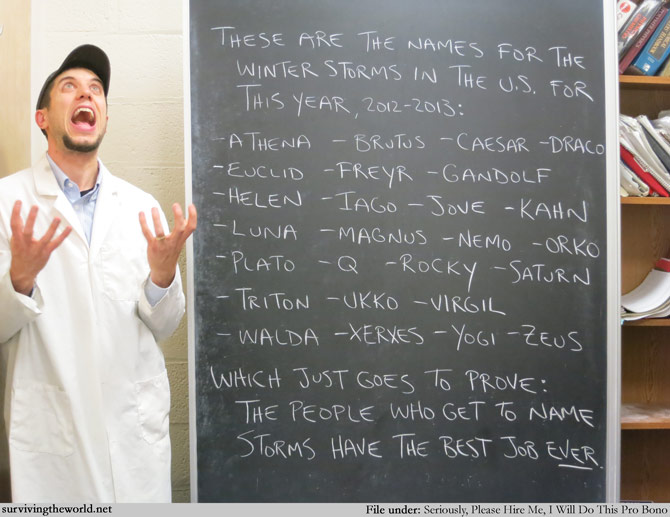 THESE ARE THE NAMES FOR THE
WINTER STORMS IN THE U.S. FOR
THIS YEAR, 2012-2013:
-ATHENA -BRUTUS -CAESAR -DRACO
-EUCLID -FREYR -GANDOLF
-HELEN -IAGO -JOVE -KAHN
-LUNA -MAGNUS -NEMO -ORKO
-PLATO -Q -ROCKY -SATURN
-TRITON -UKKO -VIRGIL
-WALDA -XERXES -YOGI -ZEUS
WHICH JUST GOES TO PROVE:
THE PEOPLE WHO GET TO NAME
STORMS HAVE THE BEST JOB EVER.
survivingtheworld.net
File under: Seriously, Please Hire Me, I Will Do This Pro Bono